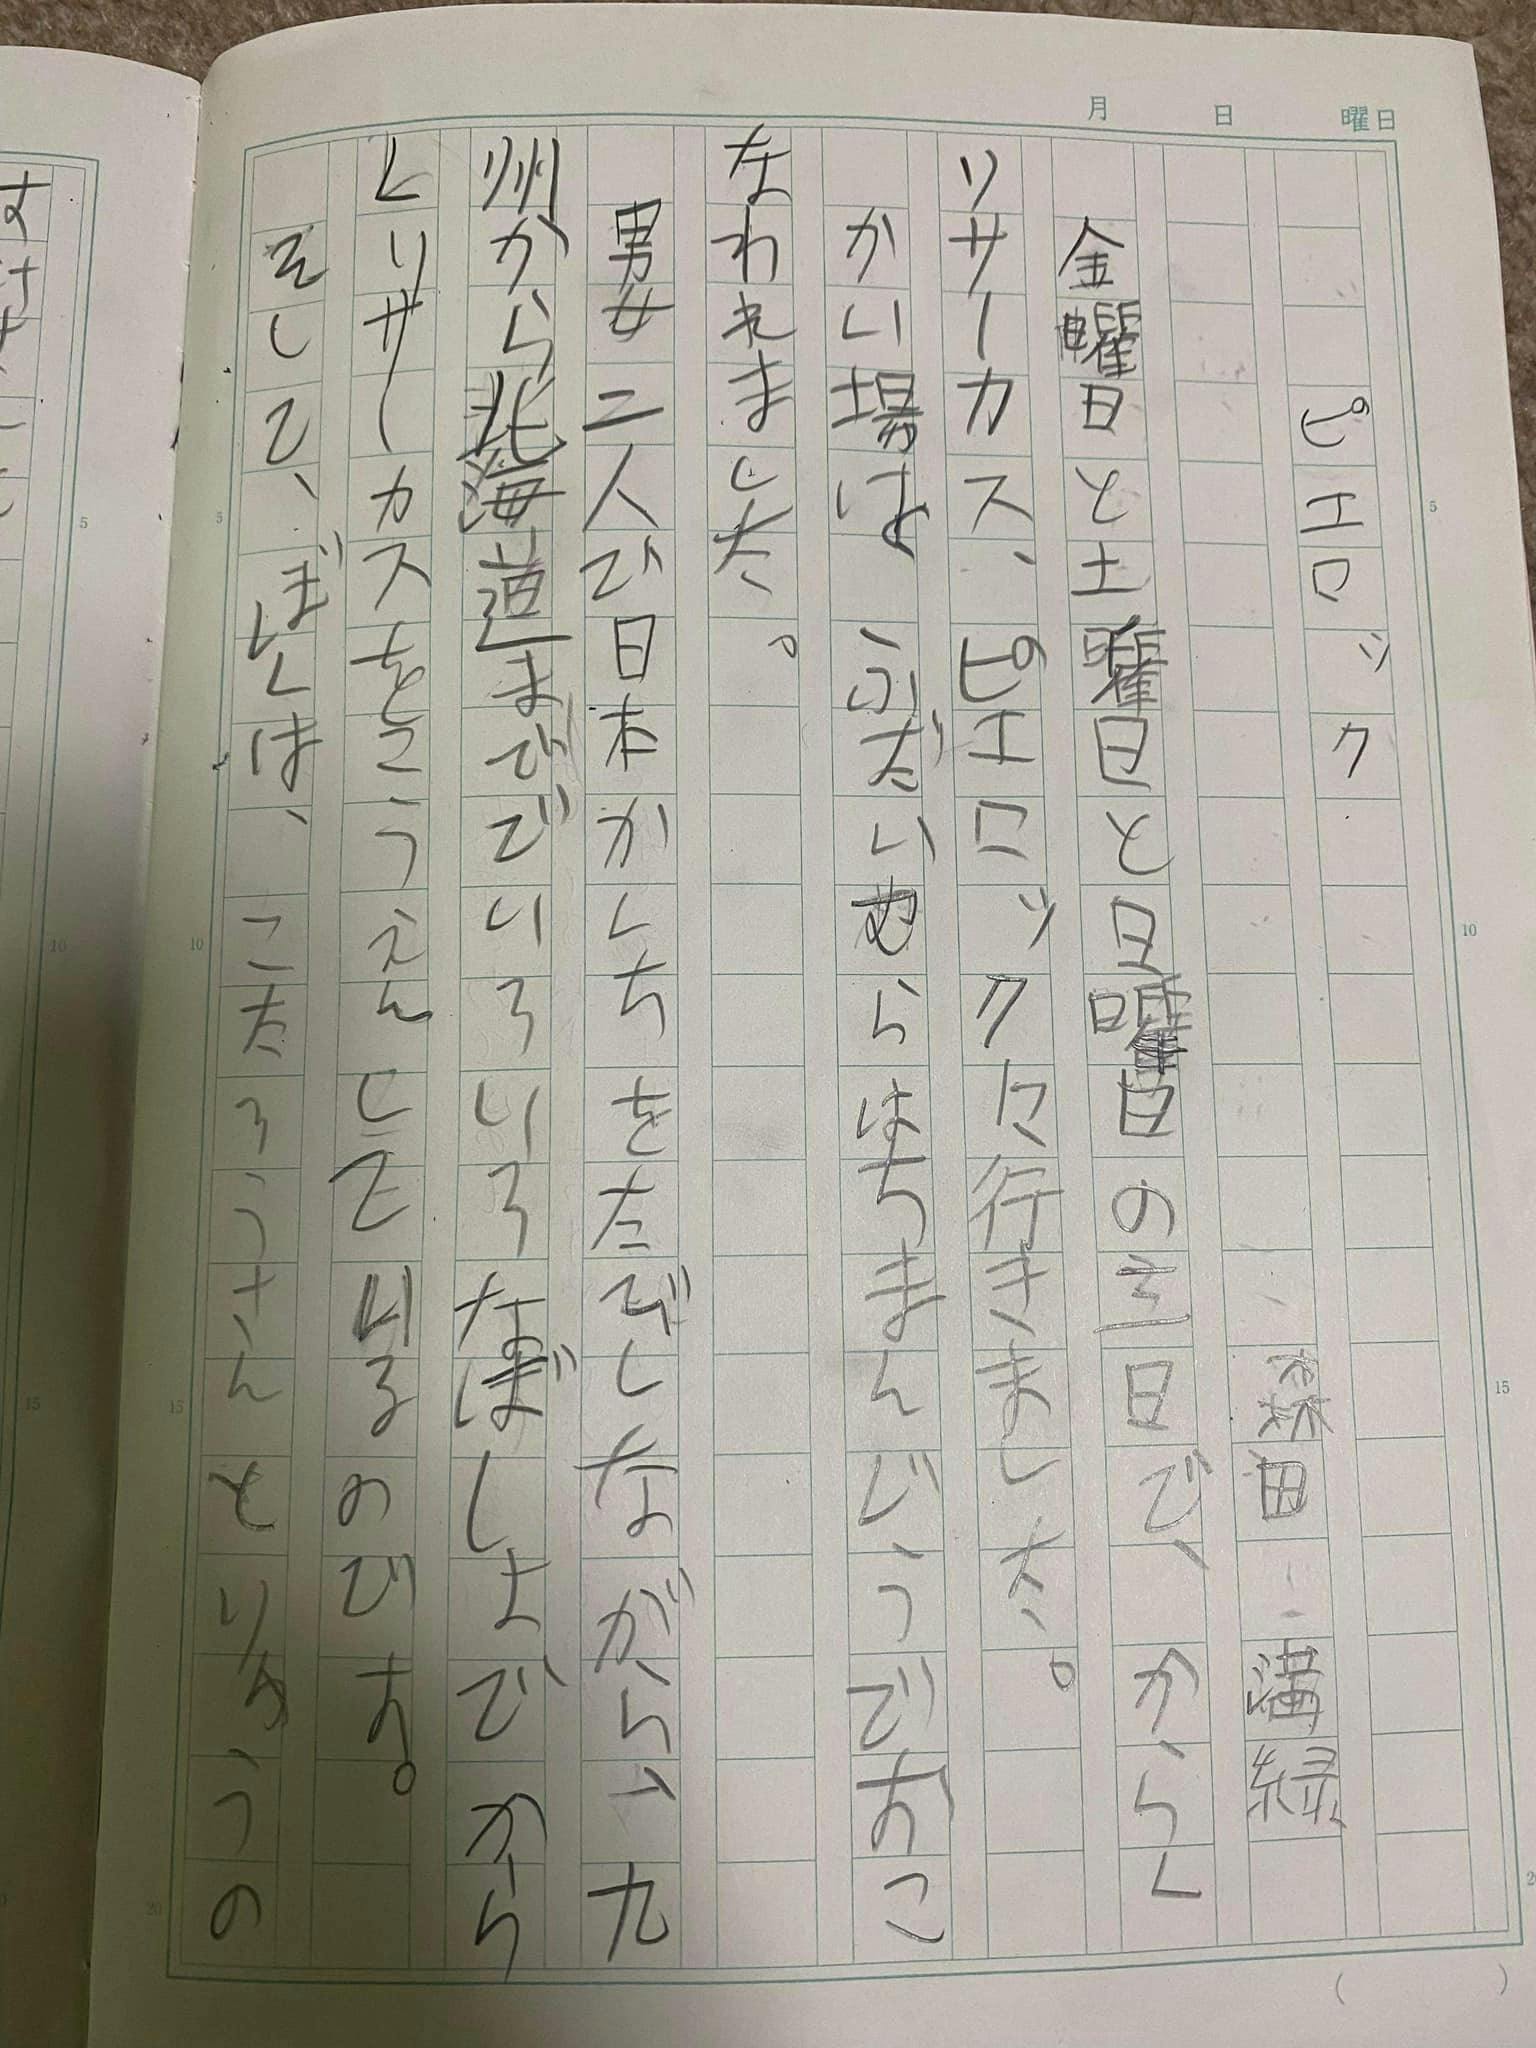 月 日 曜日
ピエロック
森田 溝緑
金曜日と土曜日と日曜日の三日で、からく
りサーカス、ピエロックに行きました。
かい場は、ふだい也らはちまんじうでおこ
なわれました。
男女二人で日本かしちをたびしながら、九
州から北海道まででいろいろなばしょでから
くりサーカスをこうえんしているのです。
そして、ぼくは、こたろうさんとりゅうの
5
10
15
20